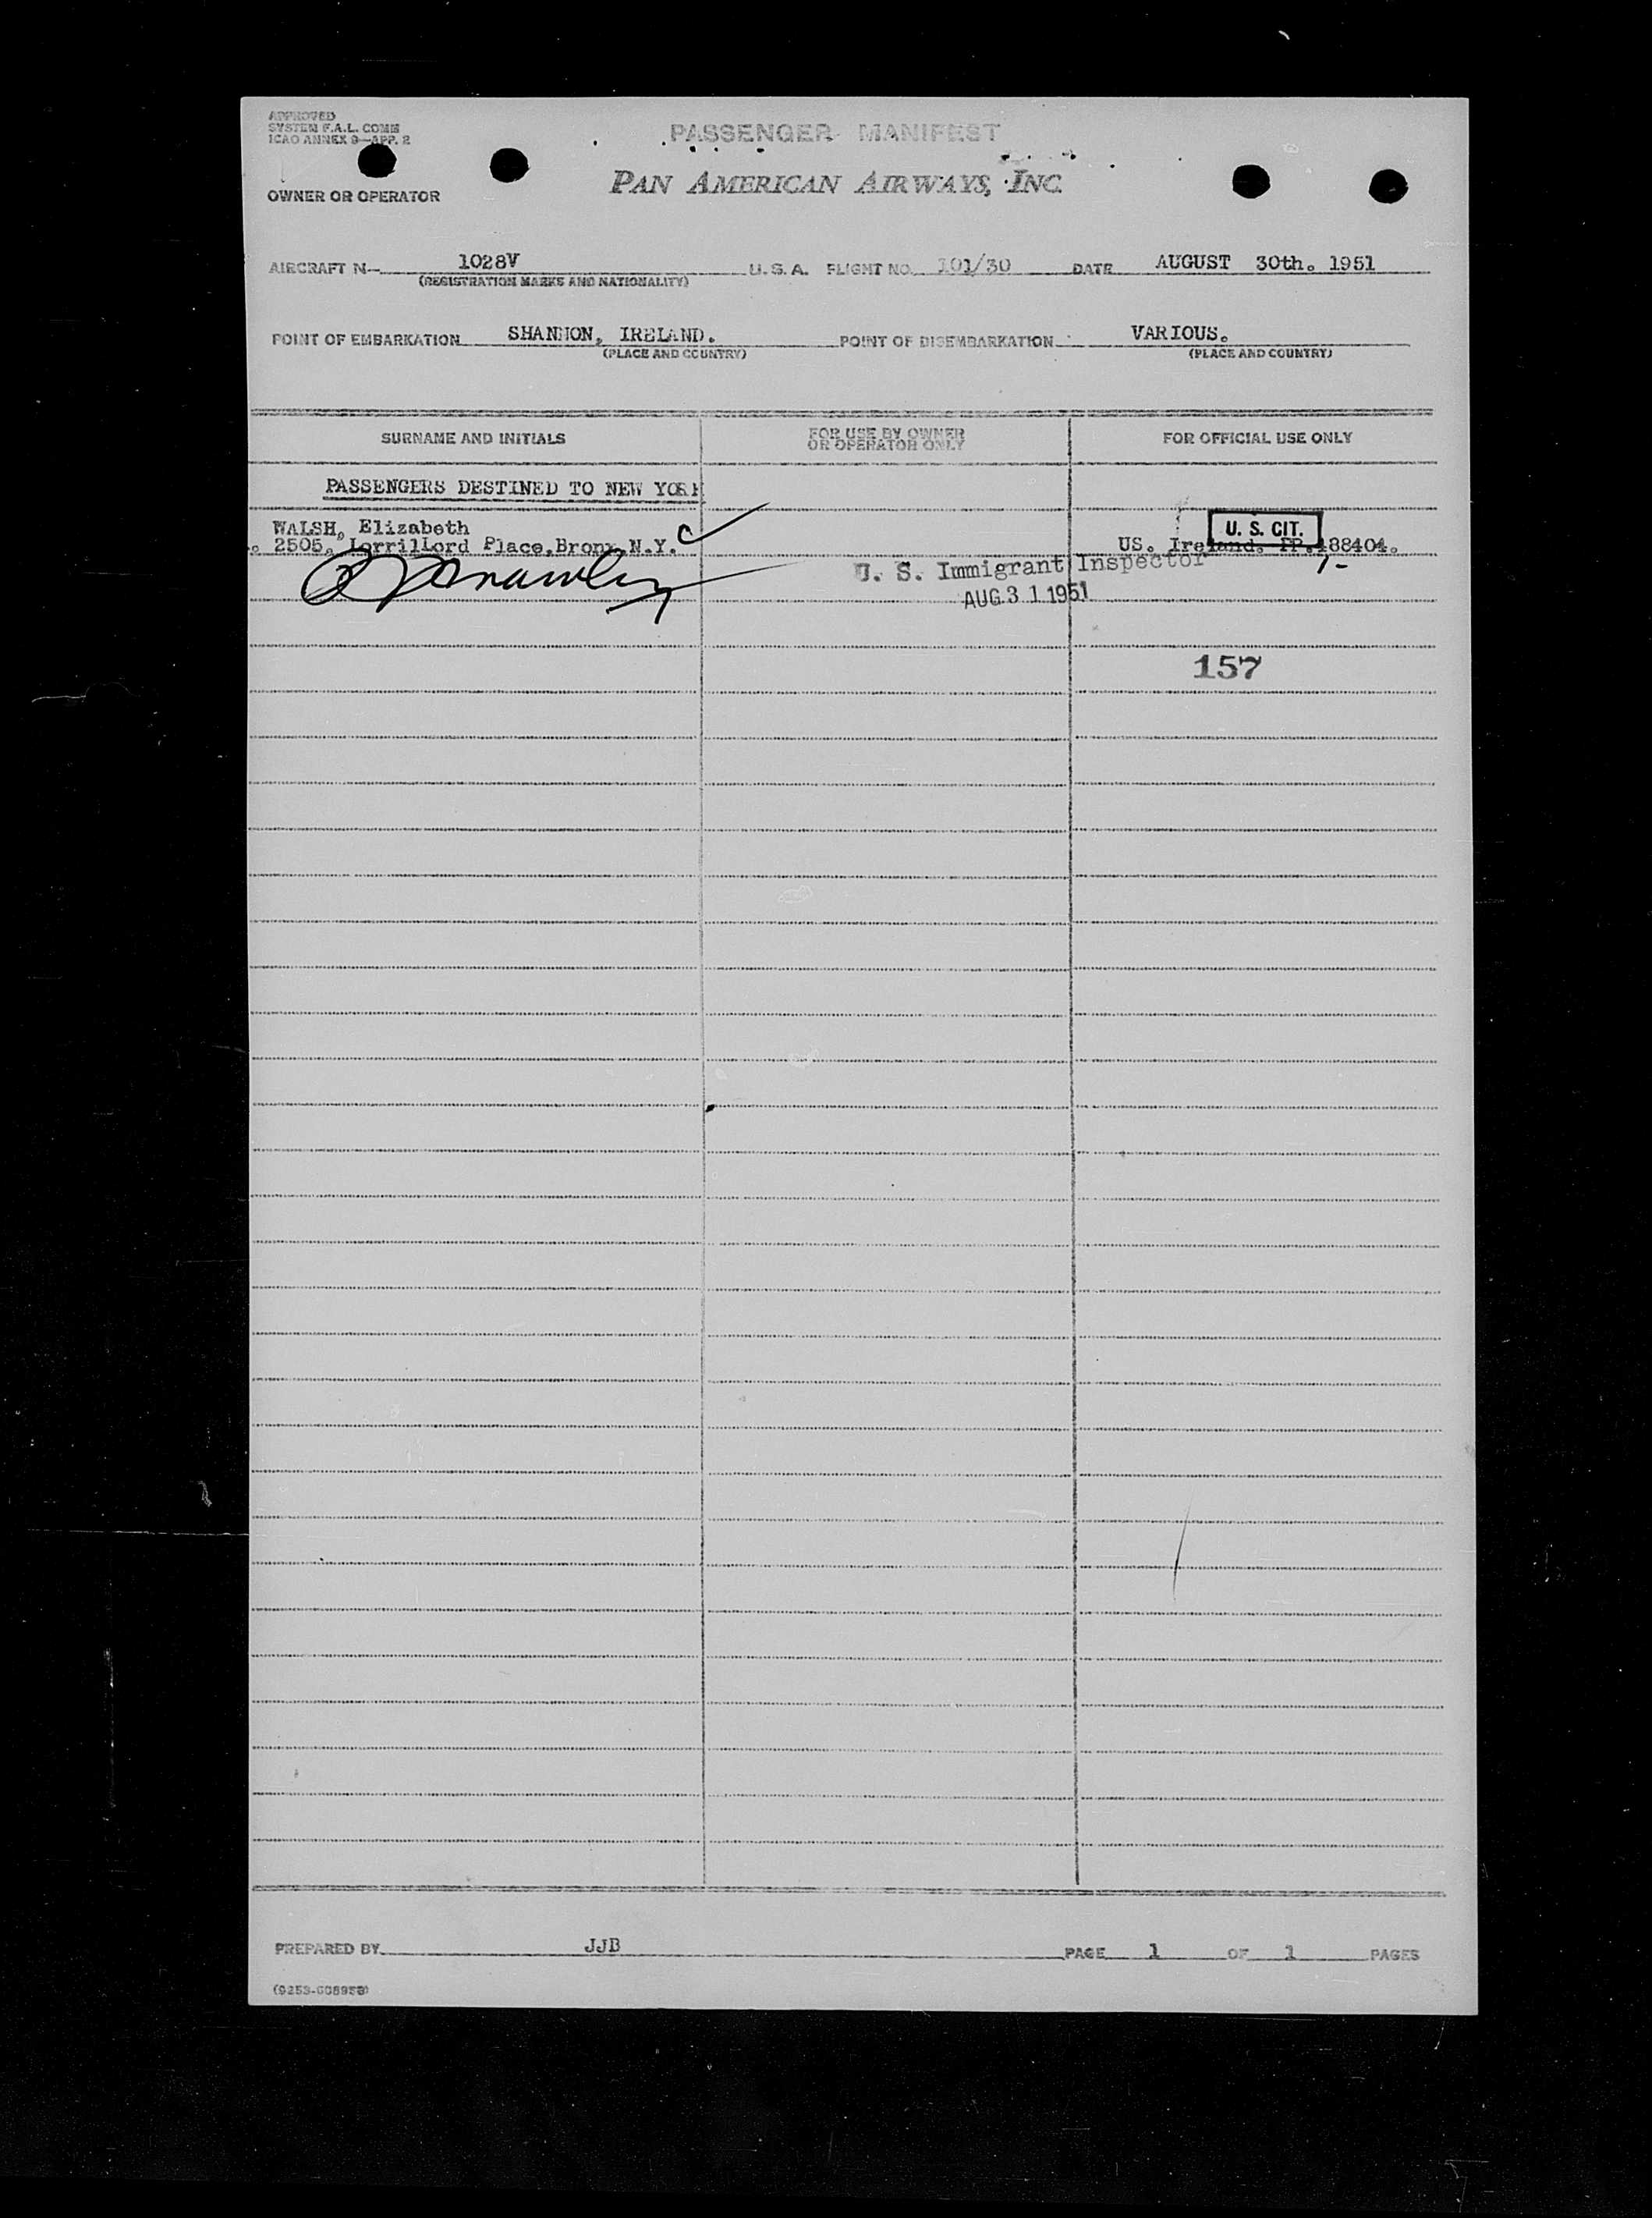 APPROVED
SYSTEM F.A.L. COMM
ICAO ANNEX 9—APP. 2
PASSENGER MANIFEST
OWNER OR OPERATOR
PAN AMERICAN AIRWAYS, INC.
AIRCRAFT N— 1028V U.S.A. FLIGHT NO. 101/30 DATE AUGUST 30th. 1951
(REGISTRATION MARKS AND NATIONALITY)
POINT OF EMBARKATION SHANNON, IRELAND. POINT OF DISEMBARKATION VARIOUS.
(PLACE AND COUNTRY) (PLACE AND COUNTRY)
SURNAME AND INITIALS FOR USE BY OWNER OR OPERATOR ONLY FOR OFFICIAL USE ONLY
PASSENGERS DESTINED TO NEW YORK
WALSH, Elizabeth U. S. CIT.
2505, LorrilLord Place, Bronx, N.Y. US. Ireland. PP.488404.
U. S. Immigrant Inspector
AUG 31 1951
157
PREPARED BY JJB PAGE 1 OF 1 PAGES